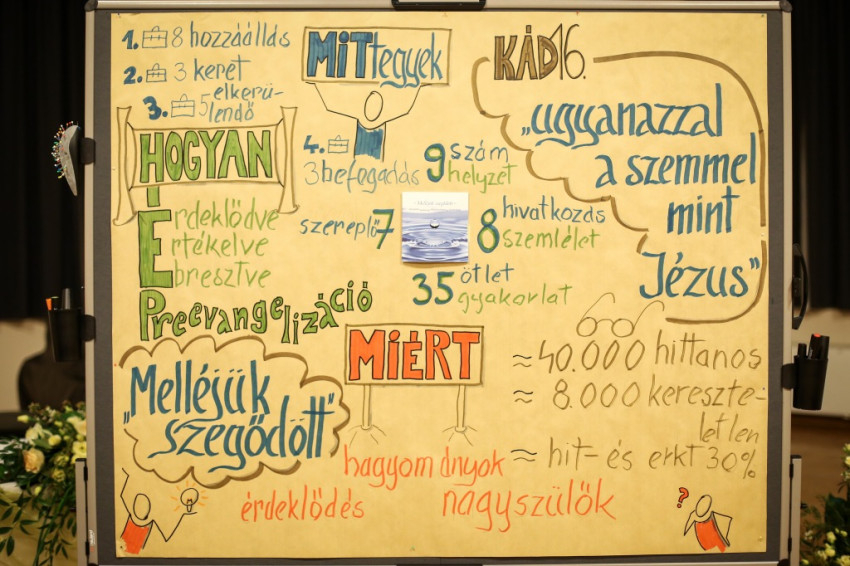 1. 8 hozzáállás
2. 3 keret
3. 5 elkerü-
lendő
MiT tegyek
4.
3 befogadás
KÁD16.
„ugyanazzal
a szemmel
mint
Jézus"
HOGYAN
Érdeklődve
Értékelve
Ébresztve
Preevangelizáció
9 szám
helyzet
szereplő 7
8 hivatkozás
szemlélet
35 ötlet
gyakorlat
„Melléjük
szegődött"
MiÉRT
hagyományok
érdeklődés
nagyszülők
≈ 40.000 hittanos
≈ 8.000 kereszte-
letlen
≈ hit- és erkt 30%
?